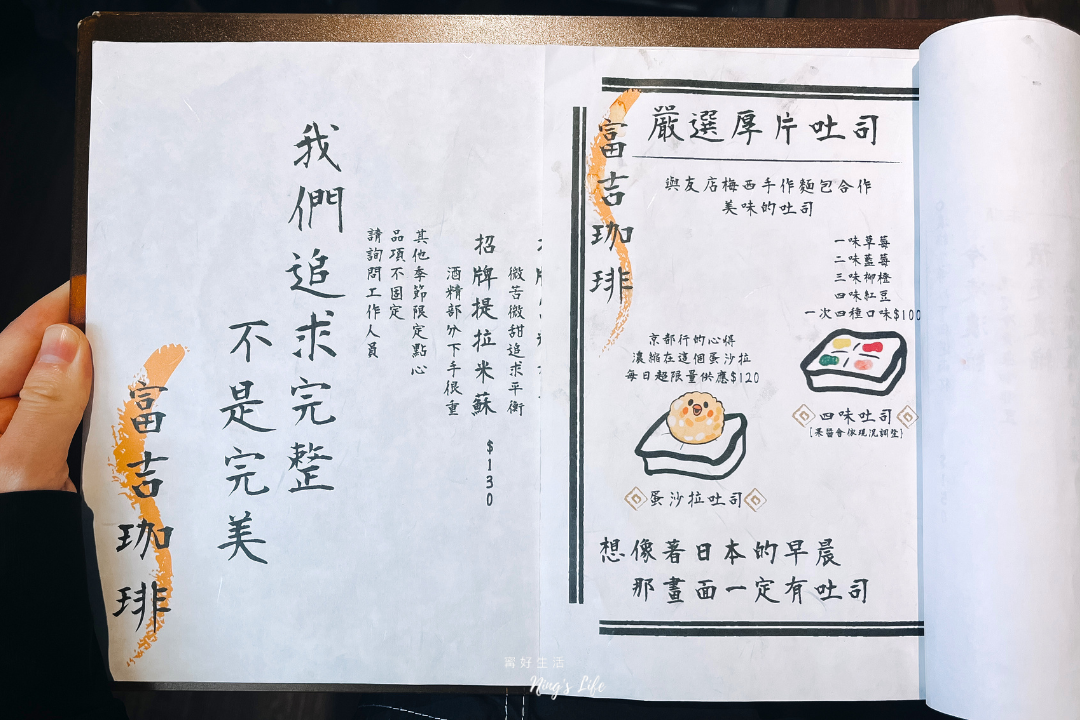 我們追求完整
不是完美
富吉珈琲
微苦微甜追求平衡
招牌提拉米蘇 $130
酒精部分下手很重
其他季節限定點心
品項不固定
請詢問工作人員
富吉珈琲
嚴選厚片吐司
與友店梅西手作麵包合作
美味的吐司
一味草莓
二味藍莓
三味柳橙
四味紅豆
一次四種口味$100
四味吐司
[果醬會依現況調整]
京都行的心得
濃縮在這個蛋沙拉
每日超限量供應$120
蛋沙拉吐司
想像著日本的早晨
那畫面一定有吐司
甯好生活
Ning's Life